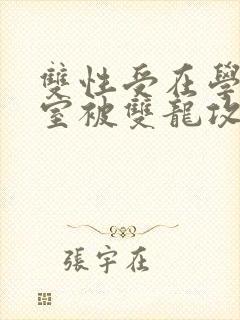 雙性受在學
室被雙龍攻
張宇在